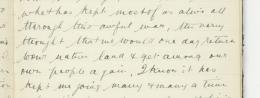 what has kept most of us alive all
through this awful war, the very
thought that we would one day return
to our native land & get among our
own people again, I know it has
kept me going many & many a time